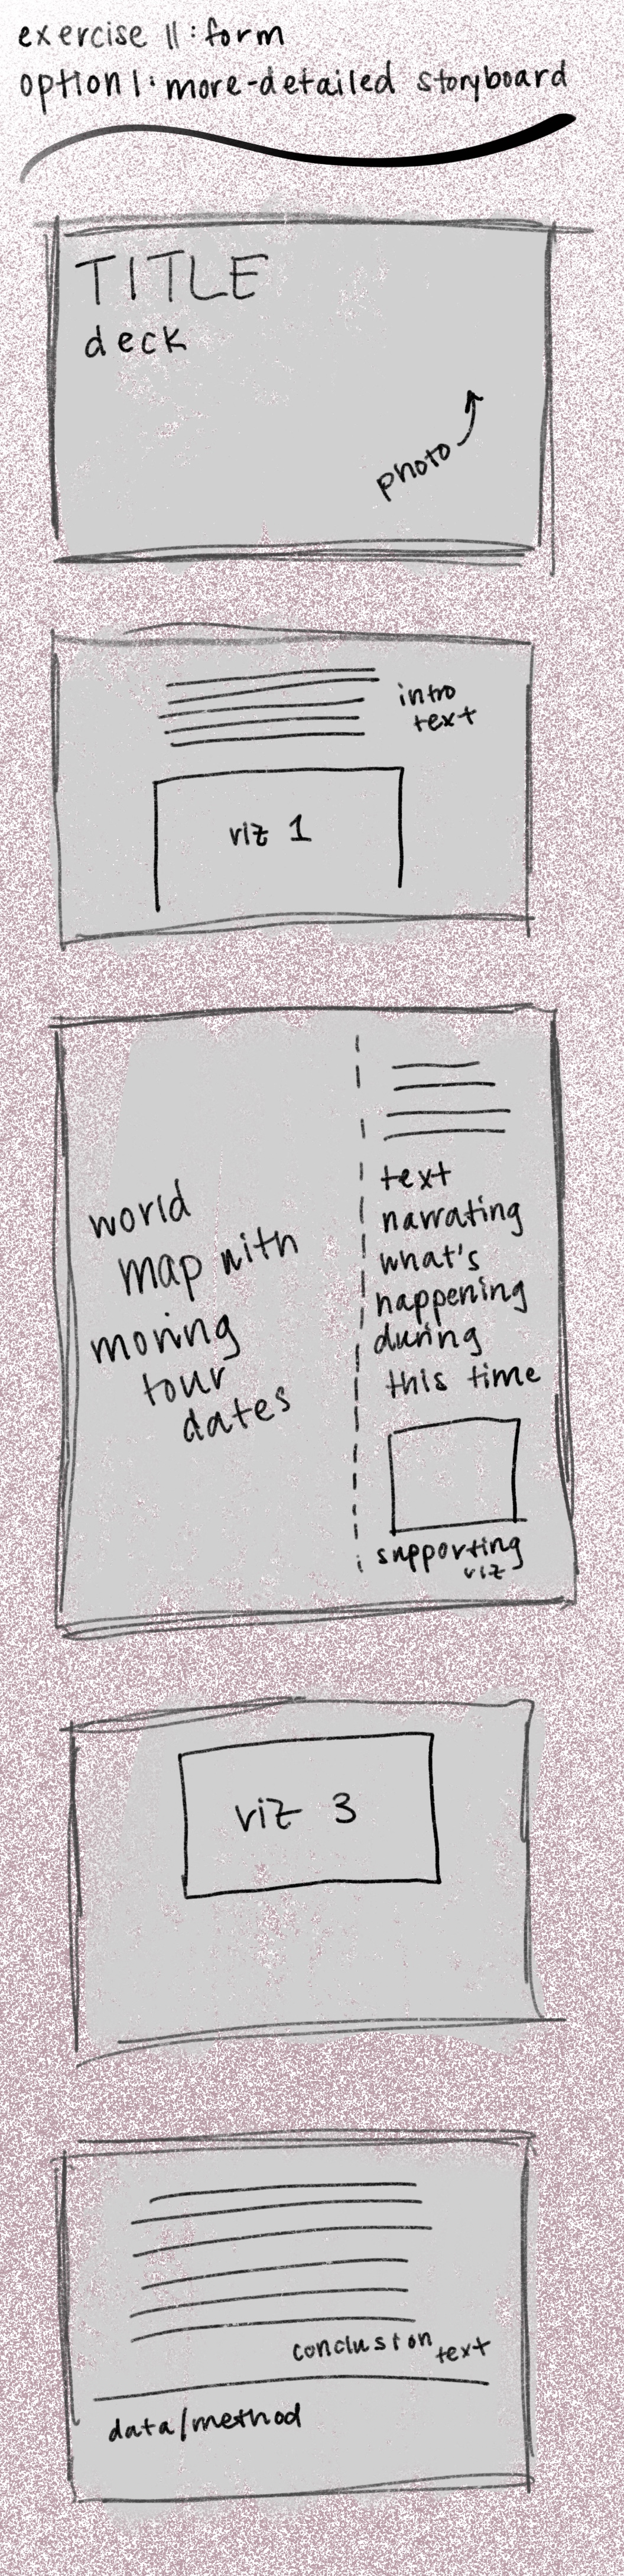 exercise 11: form
option 1: more-detailed storyboard
TITLE
deck
photo
intro
text
viz 1
world
map with
moving
tour
dates
text
narrating
what's
happening
during
this time
supporting
viz
viz 3
conclusion text
data/method